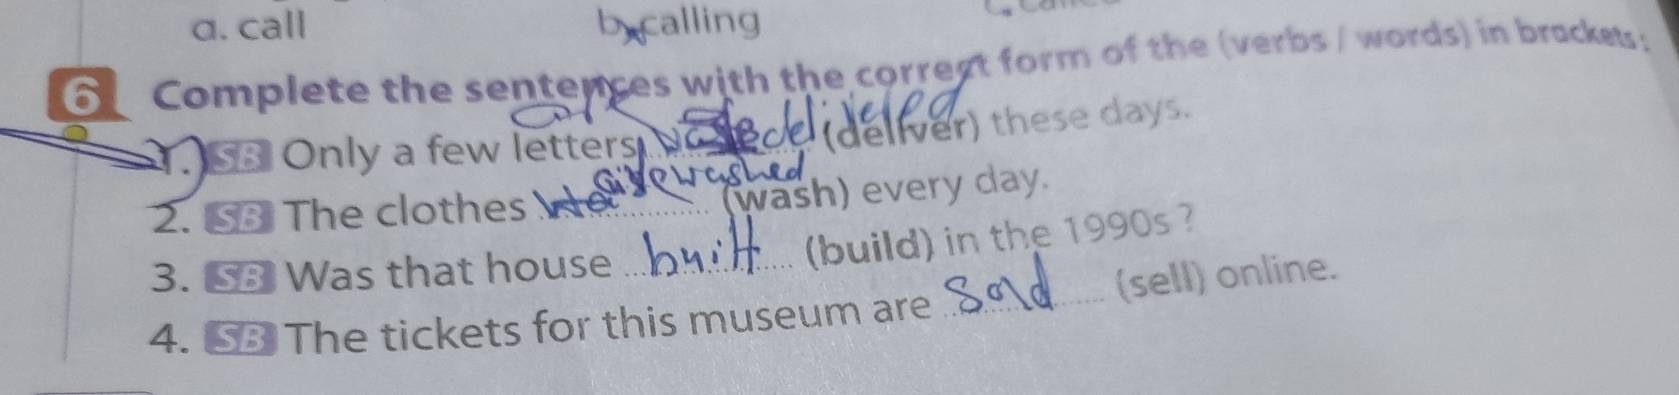 a. call b. calling
6 Complete the sentences with the correct form of the (verbs / words) in brackets:
are
1. SB Only a few letters delideled (deliver) these days.
are washed
2. SB The clothes (wash) every day.
3. SB Was that house built (build) in the 1990s?
4. SB The tickets for this museum are Sold (sell) online.